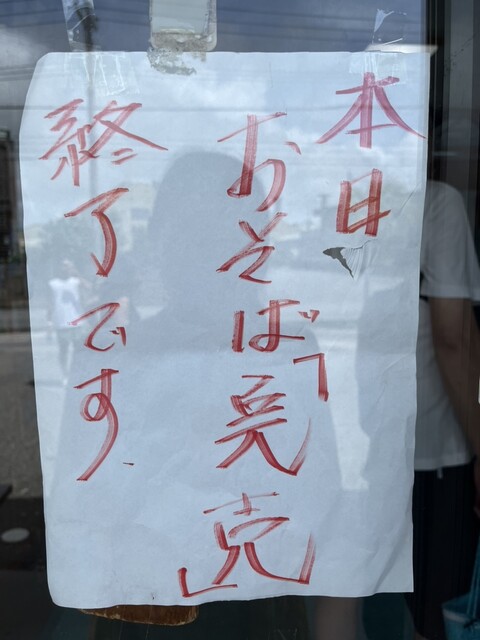 本日
おそば「完売」
終了です.